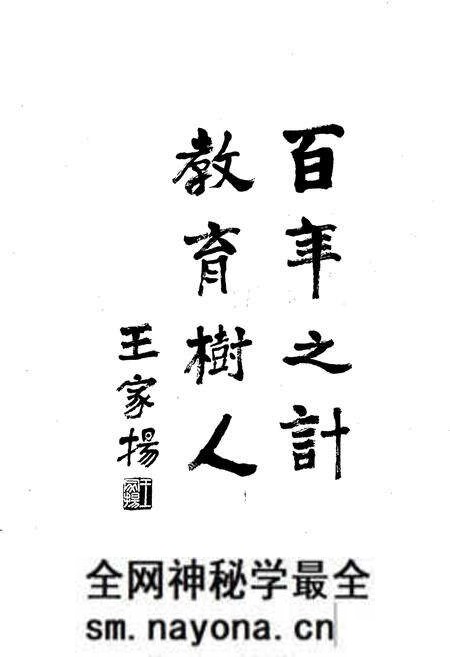 百年之計
教育樹人
王家揚
王家揚
全网神秘学最全
sm.nayona.cn